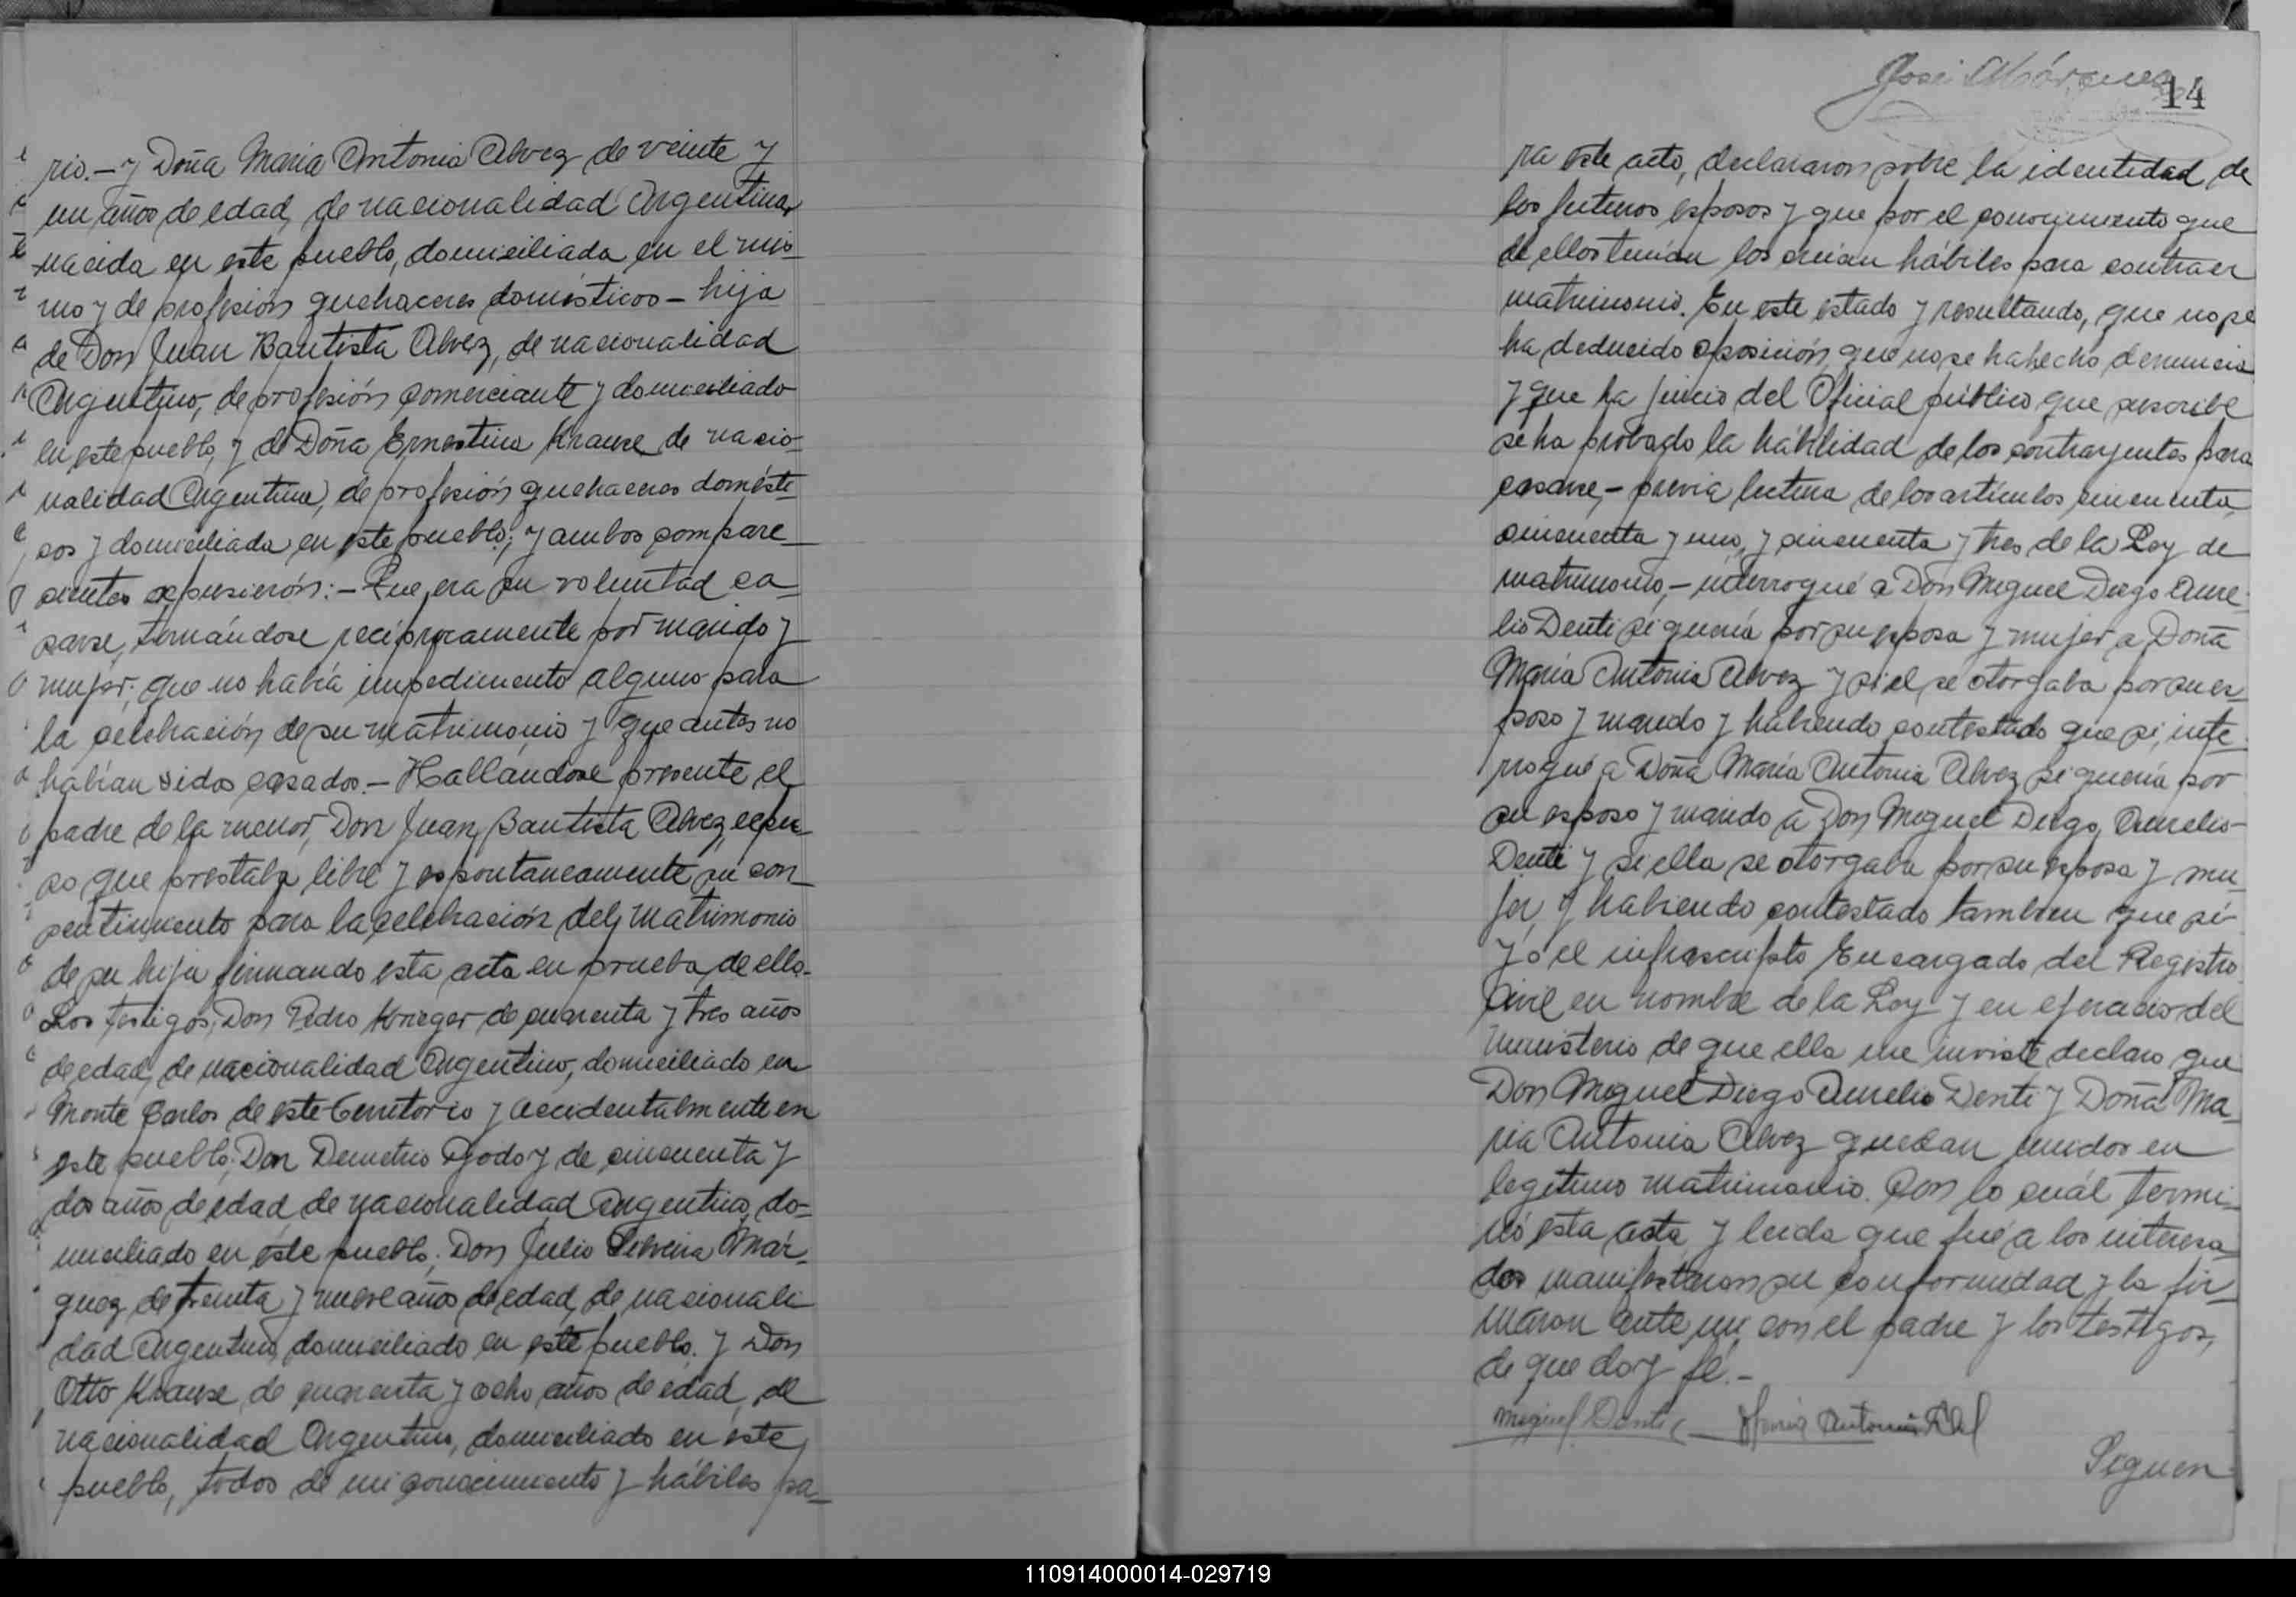 rio.— y Doña Maria Antonia Alvez de veinte y
un años de edad, de nacionalidad Argentina,
nacida en este pueblo, domiciliada en el mis-
mo y de profesión quehaceres domésticos — hija
de Don Juan Bautista Alvez, de nacionalidad
Argentino, de profesión comerciante y domiciliado
en este pueblo, y de Doña Ernestina Krause de nacio-
nalidad Argentina, de profesión quehaceres domésti-
cos y domiciliada en este pueblo; y ambos compare-
cientes expusierón: — Que era su voluntad ca-
sarse, tomándose recíprocamente por marido y
mujer; que no había impedimento alguno para
la celebración de su matrimonio y que antes no
habían sidos casados. — Hallándose presente el
padre de la menor, Don Juan Bautista Alvez, expu-
so que prestaba libre y espontaneamente su con-
sentimiento para la celebración del matrimonio
de su hija firmando esta acta en prueba de ello.
Los testigos, Don Pedro Krieger de cuarenta y tres años
de edad, de nacionalidad Argentino, domiciliado en
Monte Carlos de este Territorio y accidentalmente en
este pueblo; Don Demetrio Godoy de cincuenta y
dos años de edad de nacionalidad Argentino, do-
miciliado en este pueblo; Don Julio Silveira Már-
quez de treinta y nueve años de edad, de nacionali
dad Argentino domiciliado en este pueblo. y Don
Otto Krause, de cuarenta y ocho años de edad, de
nacionalidad Argentino, domiciliado en este
pueblo, todos de mi conocimiento y hábiles pa-
José Márquez
14
ra este acto, declararon sobre la identidad de
los futuros esposos y que por el conocimiento que
de ellos tenían los creían hábiles para contraer
matrimonio. En este estado y resultando, que no se
ha deducido oposición, que no se ha hecho denuncia
y que ha juicio del Oficial público que suscribe
se ha probado la habilidad de los contrayentes para
casarse, — previa lectura de los artículos cincuenta,
cincuenta y uno, y cincuenta y tres de la Ley de
matrimonio, — interrogué a Don Miguel Diego Aure-
lio Denti si quería por su esposa y mujer a Doña
María Antonia Alvez y si el se otorgaba por su es-
poso y marido y habiendo contestado que si, inte-
rrogué a Doña María Antonia Alvez si quería por
su esposo y marido a Don Miguel Diego Aurelio
Denti y si ella se otorgaba por su esposa y mu-
jer, y habiendo contestado tambien que sí
Yo el infrascripto Encargado del Registro
Civil en nombre de la Ley y en ejercicio del
ministerio de que ella me inviste declaro que
Don Miguel Diego Aurelio Denti y Doña Ma-
ria Antonia Alvez quedan unidos en
legítimo matrimonio. Con lo cuál termi-
nó esta acta y leída que fué a los interesa
dos manifestaron su conformidad y la fir-
maron ante mi con el padre y los testigos,
de que doy fé. —
Miguel Denti — Maria Antonia
Siguen
110914000014-029719